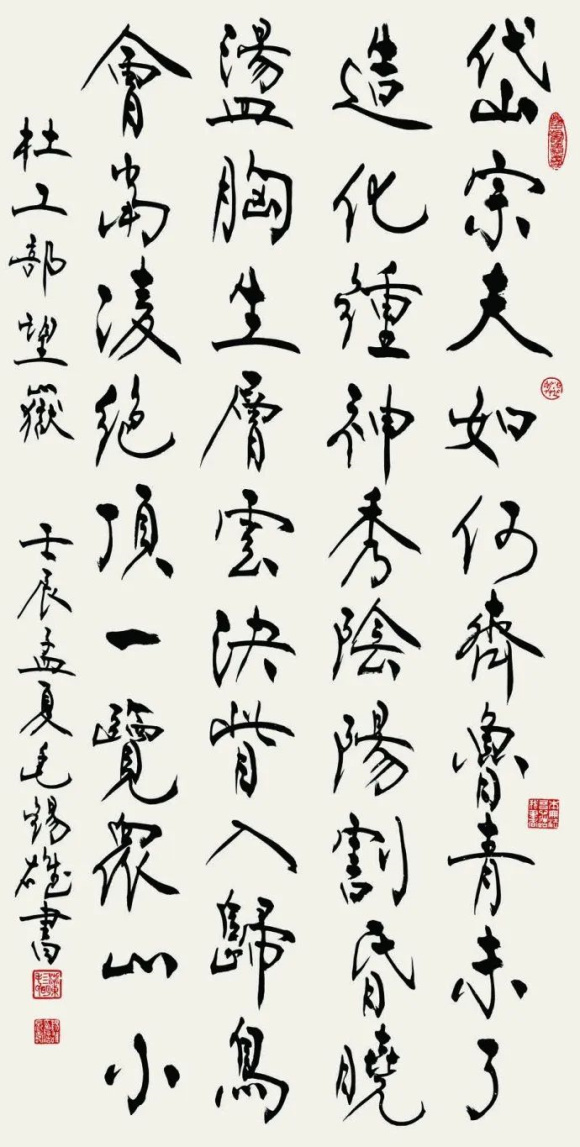 岱宗夫如何齊魯青未了
造化鍾神秀陰陽割昏曉
盪胸生層雲決眥入歸鳥
會當淩絕頂一覽眾山小
杜工部望嶽 壬辰孟夏毛錫雄書